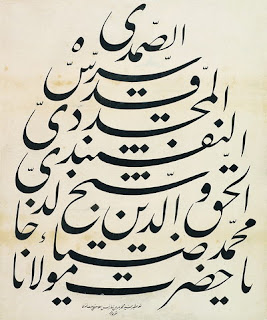 يا حضرت مولانا
محمد ضياء
الحق و الدين شيخ خالد
النقشبندى
المجددى
قدس سره
الصمدى